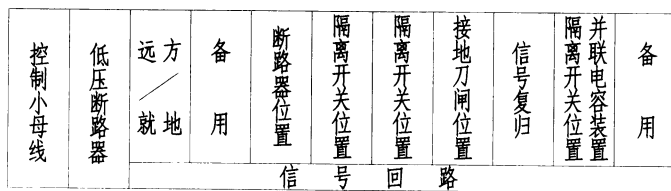 控制小母线
低压断路器
远方／就地
备用
断路器位置
隔离开关位置
隔离开关位置
接地刀闸位置
信号复归
并联电容装置
隔离开关位置
备用
信号回路